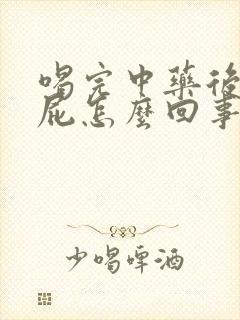 喝完中藥後
屁怎麼回事
少喝啤酒